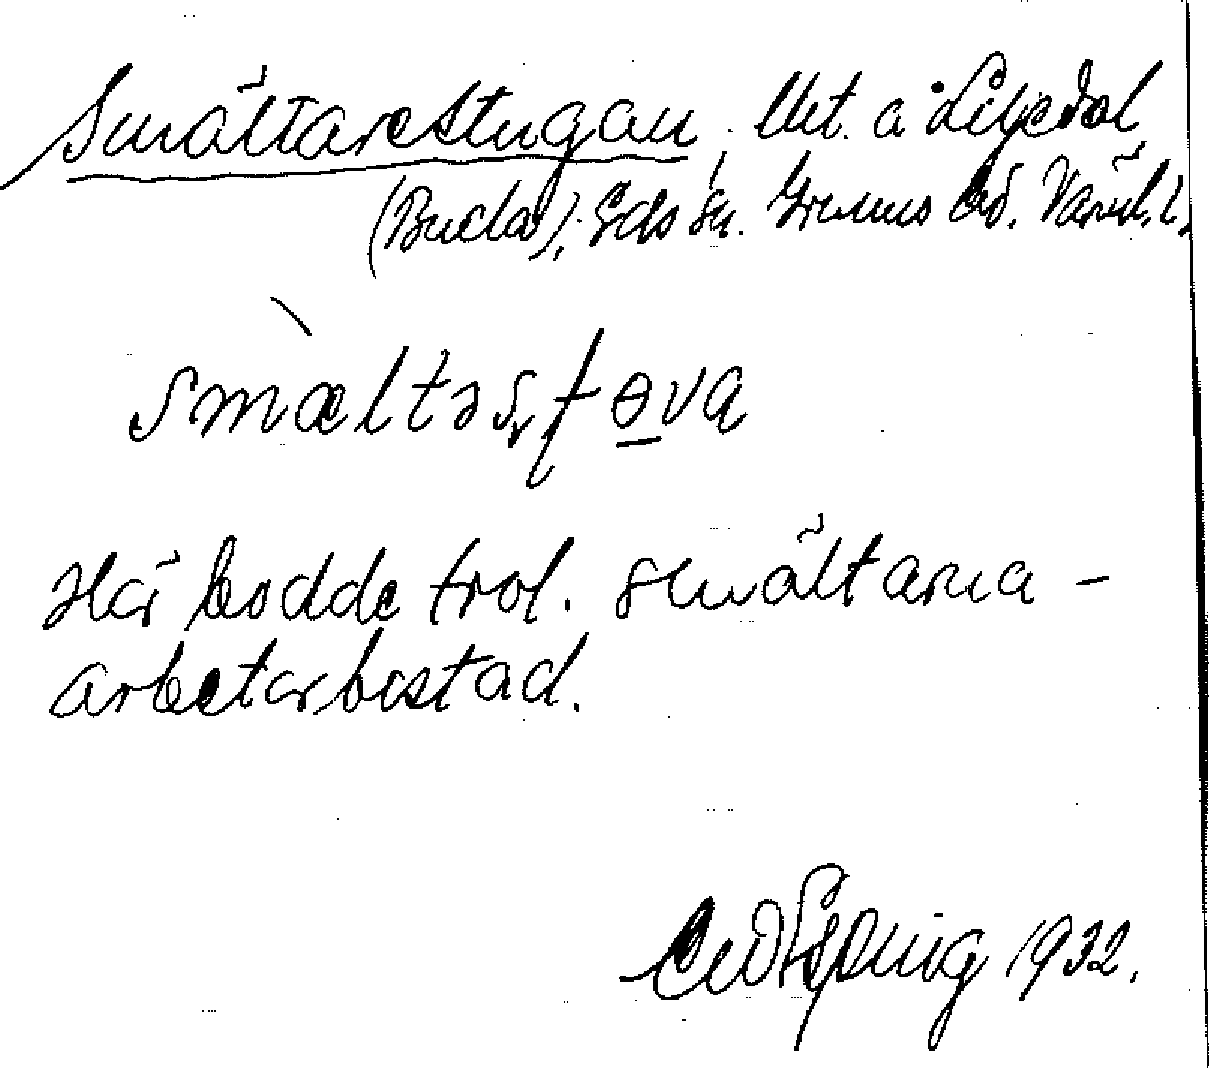 Smältarestugan, Utt. å Liljedal
(Buda), Eds sn. Grums hd. Värml. l.
smæltas,tɵva
Här bodde trol. smältarna -
arbetarbostad.
1932.